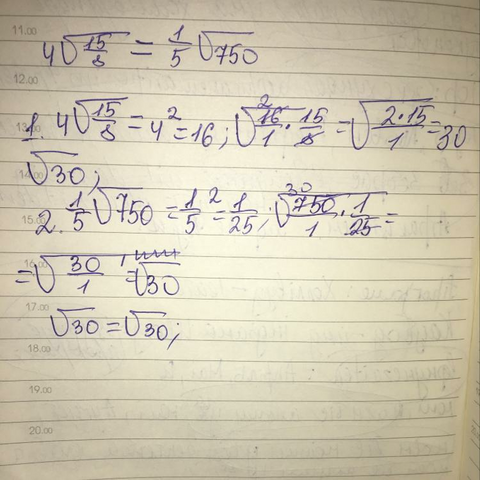 11.00
4√15/8 = 1/5 √750
12.00
1. 4√15/8 = 4² = 16; √16/1 · 15/8 = √2·15/1 = 30
2
13.00
√30;
14.00
2. 1/5 √750 = 1/5² = 1/25; √750/1 · 1/25 =
30
15.00
= √30/1 = √30
16.00
17.00
√30 = √30;
18.00
19.00
20.00